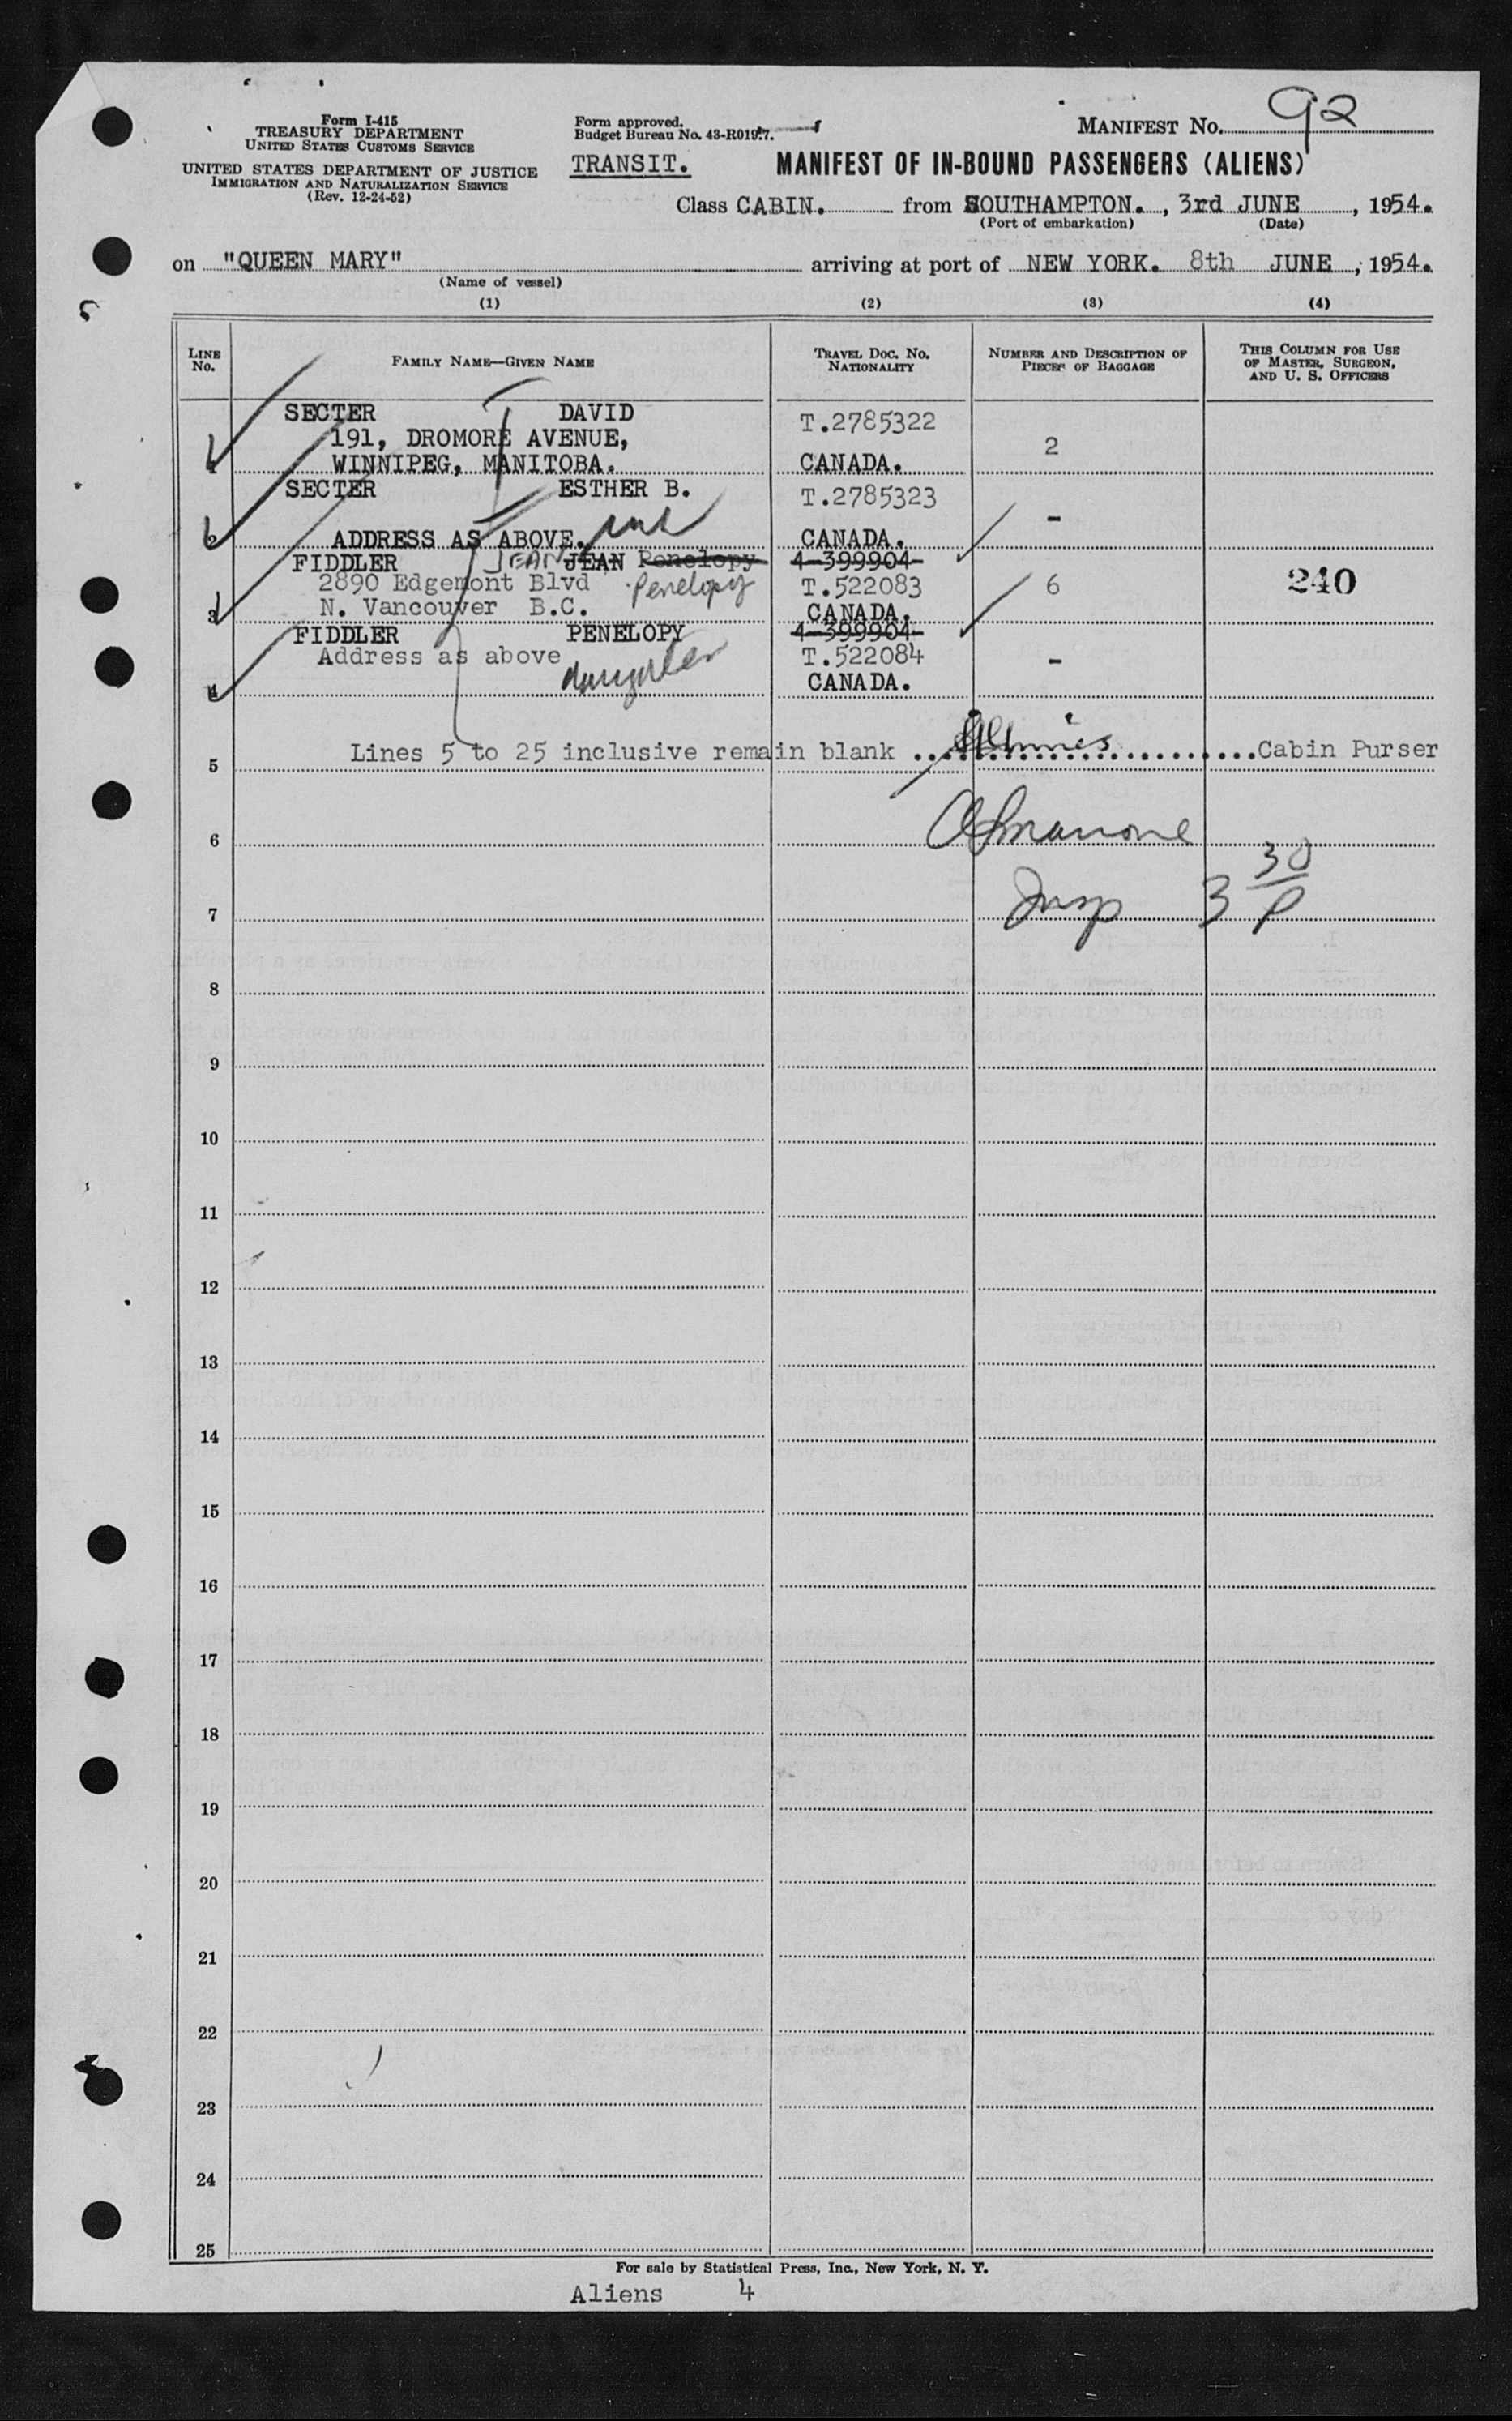 Form I-415
TREASURY DEPARTMENT
UNITED STATES CUSTOMS SERVICE
UNITED STATES DEPARTMENT OF JUSTICE
IMMIGRATION AND NATURALIZATION SERVICE
(Rev. 12-24-52)
Form approved.
Budget Bureau No. 43-R019.7.
TRANSIT.
MANIFEST NO. 92
MANIFEST OF IN-BOUND PASSENGERS (ALIENS)
Class CABIN. from SOUTHAMPTON. , 3rd JUNE , 1954.
(Port of embarkation) (Date)
on "QUEEN MARY" arriving at port of NEW YORK. 8th JUNE , 1954.
(Name of vessel)
(1) (2) (3) (4)
LINE NO. FAMILY NAME—GIVEN NAME TRAVEL DOC. NO. NATIONALITY NUMBER AND DESCRIPTION OF PIECES OF BAGGAGE THIS COLUMN FOR USE OF MASTER, SURGEON, AND U. S. OFFICERS
SECTER DAVID T.2785322
191, DROMORE AVENUE, 2
1 WINNIPEG, MANITOBA. CANADA.
SECTER ESTHER B. T.2785323
2 ADDRESS AS ABOVE. CANADA. -
FIDDLER JEAN JEAN Penelopy 4-399904-
2890 Edgemont Blvd Penelopy T.522083 6 240
3 N. Vancouver B.C. CANADA.
FIDDLER PENELOPY 4-399904-
Address as above T.522084 -
4 daughter CANADA.
Lines 5 to 25 inclusive remain blank ........................Cabin Purser
5
6
7 Insp 3 30/P
8
9
10
11
12
13
14
15
16
17
18
19
20
21
22
23
24
25
For sale by Statistical Press, Inc., New York, N. Y.
Aliens 4